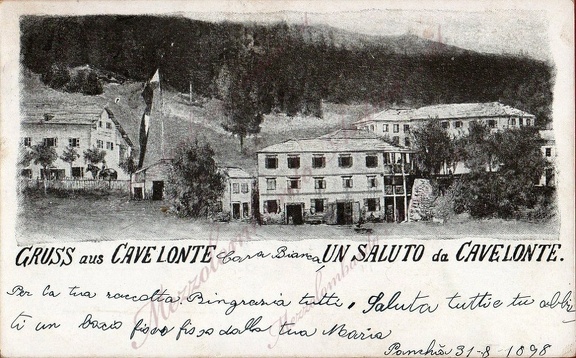 GRUSS aus CAVELONTE Cara Bianca, UN SALUTO da CAVELONTE.
Per la tua raccolta, Ringrazia tutti. Saluta tutti e tu abbi
ti un bacio fisso fisso dalla tua Maria
Panchià 31-8-1898